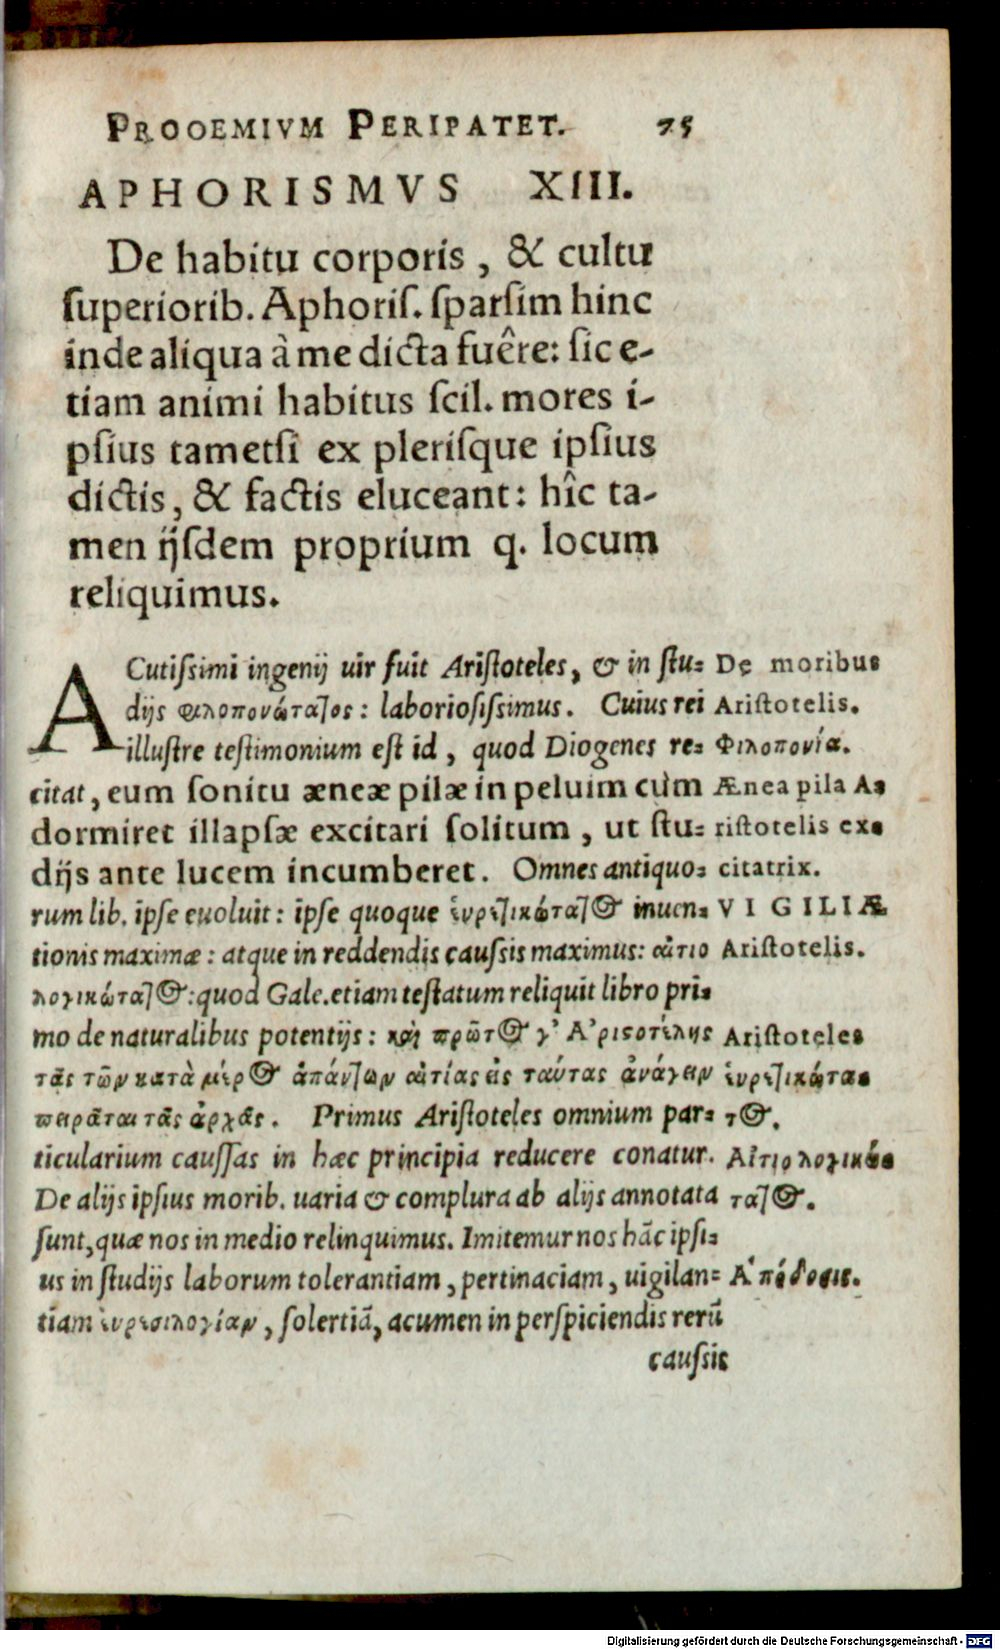 PROOEMIVM PERIPATET. 75
APHORISMVS XIII.
De habitu corporis, & cultu
ſuperiorib. Aphoriſ. ſparſim hinc
inde aliqua à me dicta fuêre: ſic e-
tiam animi habitus ſcil. mores i-
pſius tametſi ex pleriſque ipſius
dictis, & factis eluceant: hîc ta-
men ijſdem proprium q. locum
reliquimus.
ACutiſsimi ingenij uir fuit Ariſtoteles, & in ſtu-
dijs φιλοπονώτατος: laborioſiſsimus. Cuius rei
illuſtre teſtimonium eſt id, quod Diogenes re-
citat, eum ſonitu æneæ pilæ in peluim cùm
dormiret illapſæ excitari ſolitum, ut ſtu-
dijs ante lucem incumberet. Omnes antiquo-
rum lib. ipſe euoluit: ipſe quoque εὑρετικώτατος inuen-
tionis maximæ: atque in reddendis cauſsis maximus: αἰτιο
λογικώτατος: quod Gale. etiam teſtatum reliquit libro pri-
mo de naturalibus potentijs: καὶ πρῶτος γ' Ἀριστοτέλης
τὰς τῶν κατὰ μέρος ἁπάντων αἰτίας εἰς ταύτας ἀνάγειν
πειρᾶται τὰς ἀρχάς. Primus Ariſtoteles omnium par-
ticularium cauſſas in hæc principia reducere conatur.
De alijs ipſius morib. uaria & complura ab alijs annotata
ſunt, quæ nos in medio relinquimus. Imitemur nos hāc ipſi-
us in ſtudijs laborum tolerantiam, pertinaciam, uigilan-
tiam εὑρεσιλογίαν, ſolertiā, acumen in perſpiciendis rerū
cauſsis
De moribus
Ariſtotelis.
Φιλοπονία.
Ænea pila A-
riſtotelis ex-
citatrix.
VIGILIÆ
Ariſtotelis.
Ariſtoteles
εὑρετικώτα-
τος.
Αἰτιολογικώ-
τατος.
Ἀπόδοσις.
Digitalisierung gefördert durch die Deutsche Forschungsgemeinschaft - DFG